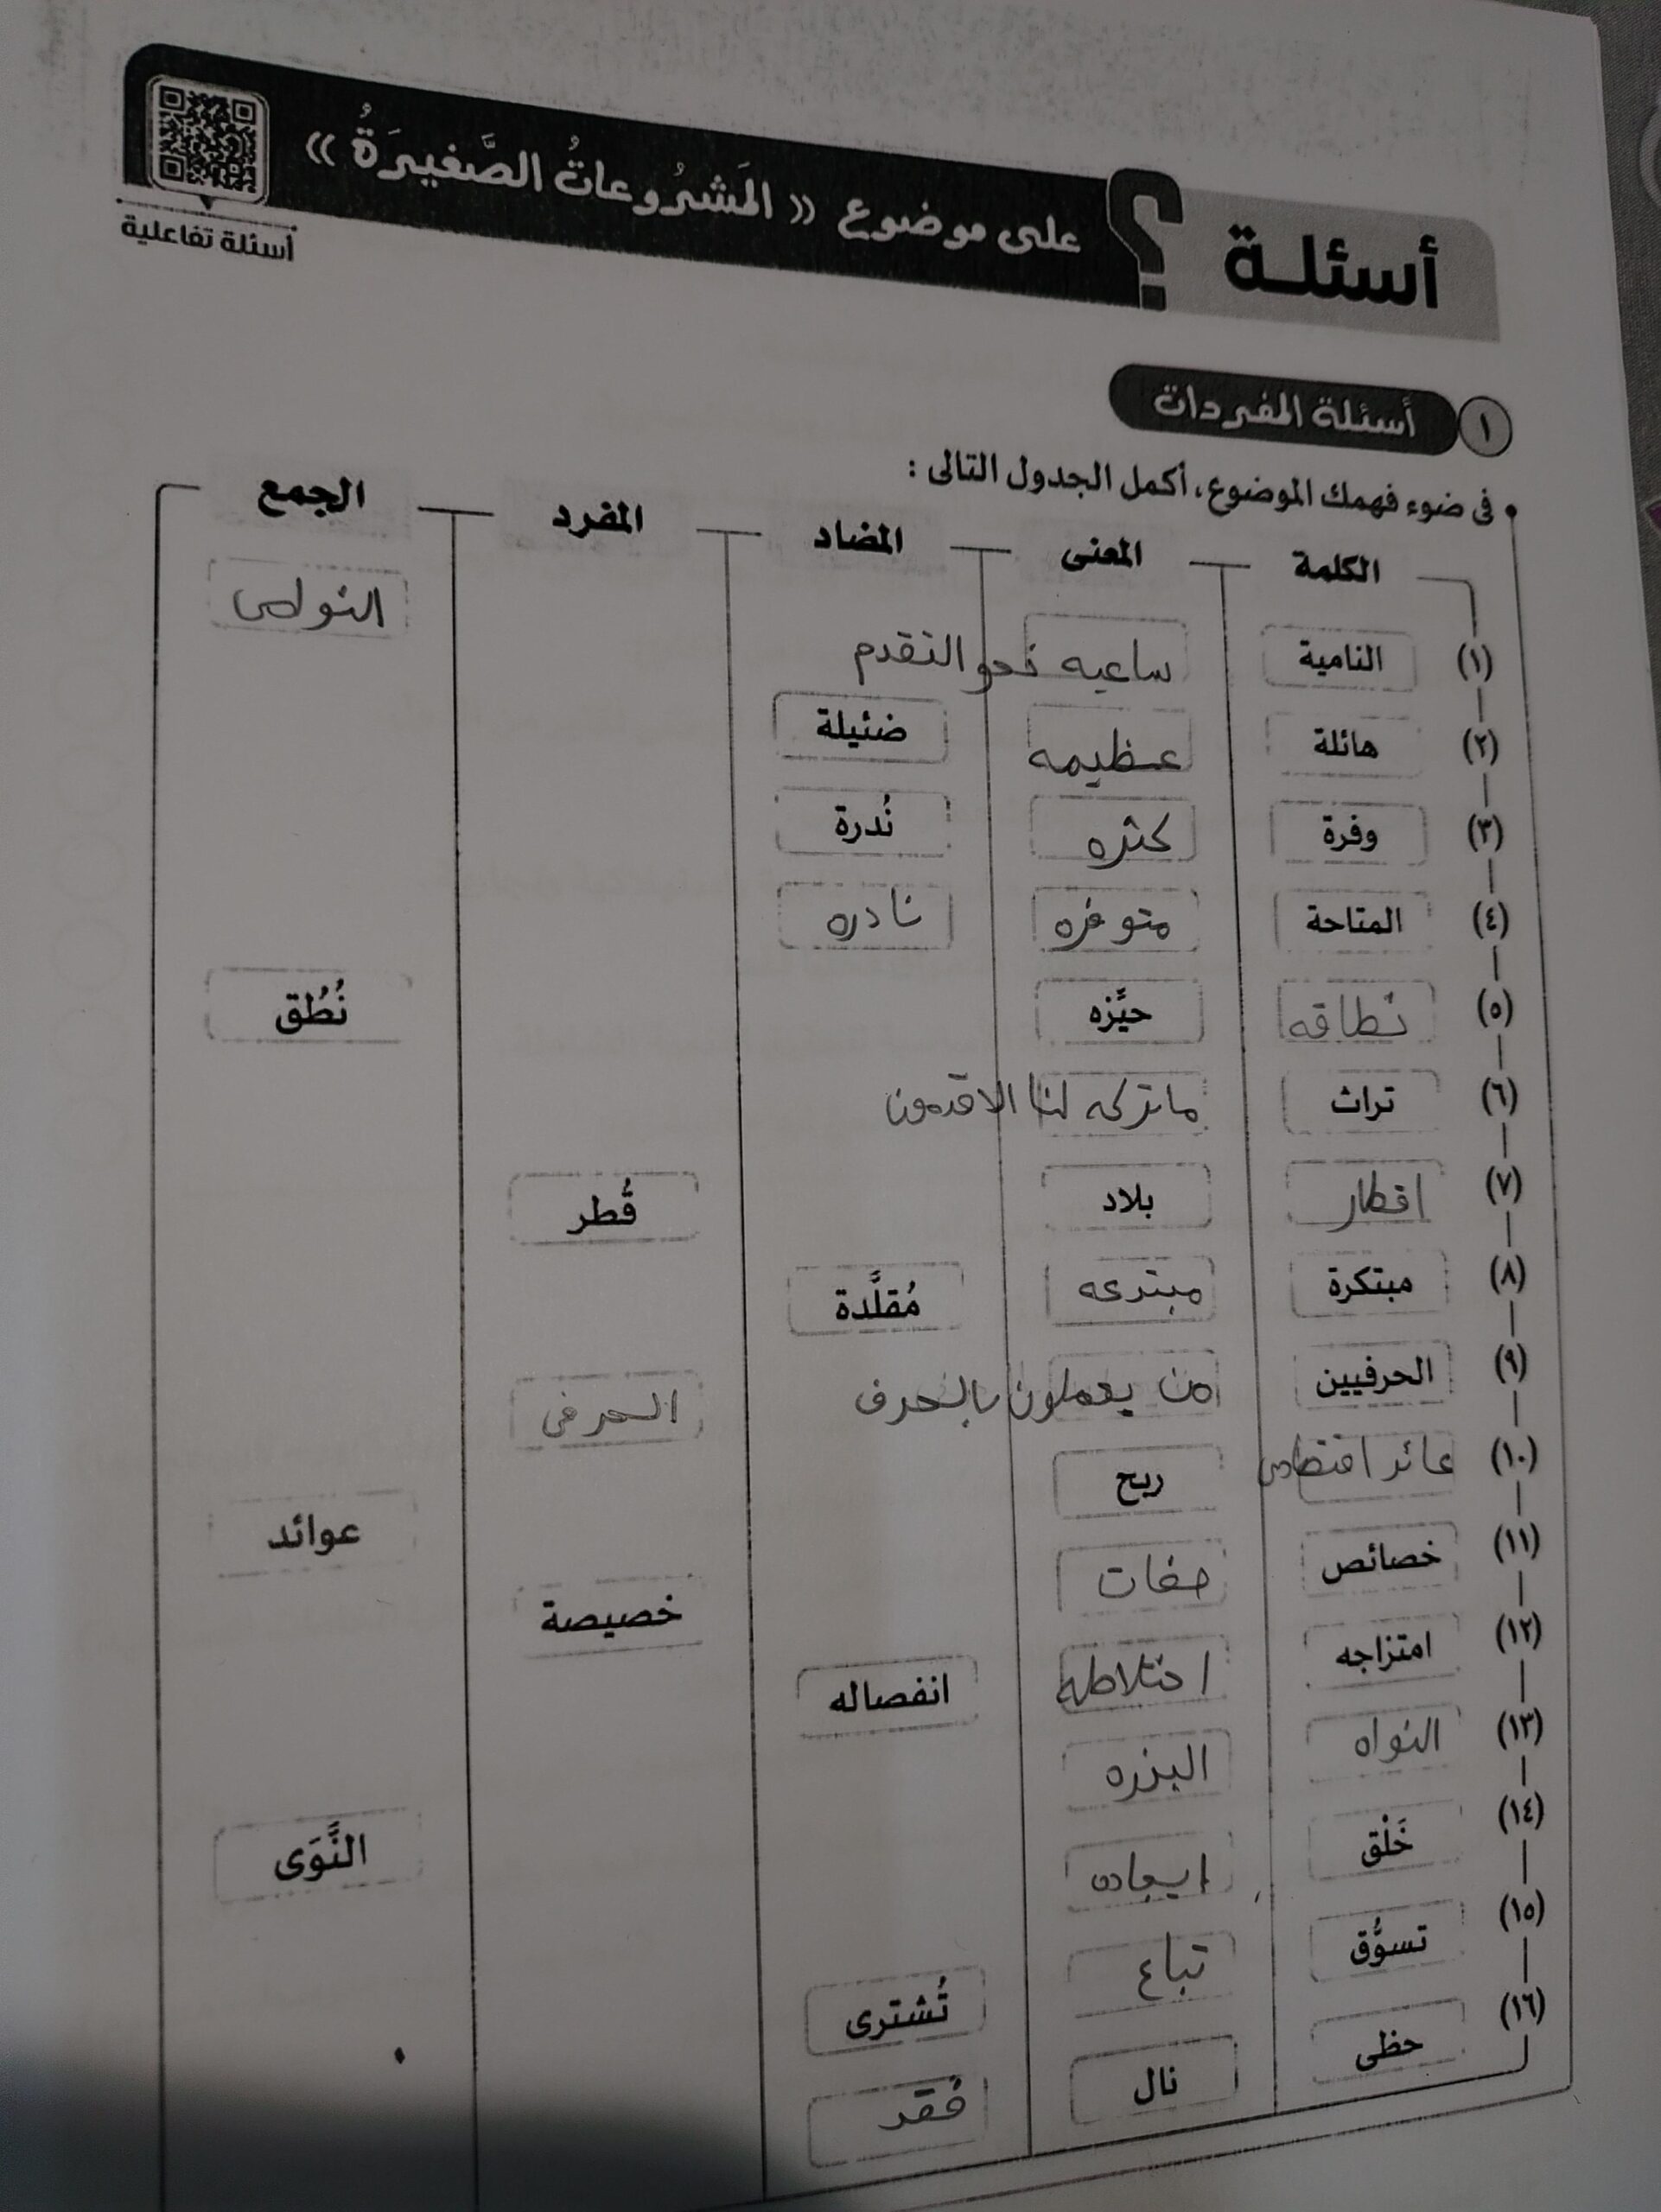 أسئلة ؟ على موضوع « المَشرُوعاتُ الصَّغيرَةُ »
أسئلة تفاعلية
١ أسئلة المفردات
• فى ضوء فهمك الموضوع، أكمل الجدول التالى :
الكلمة المعنى المضاد المفرد الجمع
(١) النامية ساعيه نحو التقدم النوامى
(٢) هائلة عظيمه ضئيلة
(٣) وفرة كثره نُدرة
(٤) المتاحة متوفره نادره
(٥) نطاقه حيِّزه نُطُق
(٦) تراث ماتركه لنا الاقدمون
(٧) اقطار بلاد قُطر
(٨) مبتكرة مبتدعه مُقلَّدة
(٩) الحرفيين من يعملون بالحرف الحرفى
(١٠) عائد اقتصادى ربح عوائد
(١١) خصائص صفات خصيصة
(١٢) امتزاجه اختلاطه انفصاله
(١٣) النواه البذره النَّوَى
(١٤) خَلْق ايجاد
(١٥) تسوُّق تباع تُشترى
(١٦) حظى نال فقد